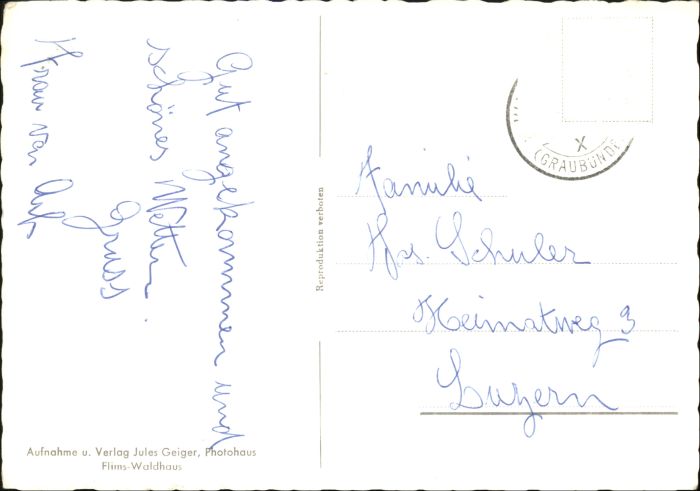 Gut angekommen und
schönes Wetter.
Gruss
Frau von
Familie
Hs. Schuler
Heimatweg 3
Luzern
Reproduktion verboten
X
(GRAUBÜND
Aufnahme u. Verlag Jules Geiger, Photohaus
Flims-Waldhaus